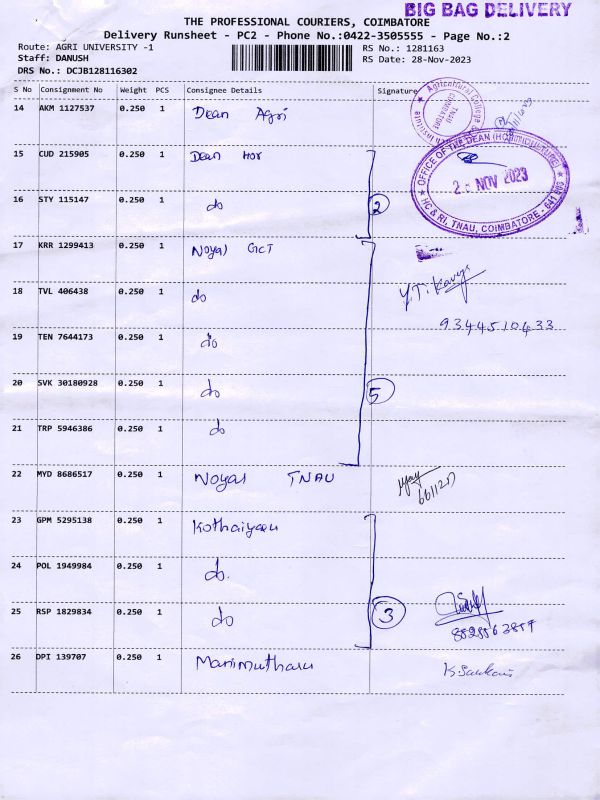 BIG BAG DELIVERY
THE PROFESSIONAL COURIERS, COIMBATORE
Delivery Runsheet - PC2 - Phone No.:0422-3505555 - Page No.:2
Route: AGRI UNIVERSITY -1 RS No.: 1281163
Staff: DANUSH RS Date: 28-Nov-2023
DRS No.: DCJB128116302
S No Consignment No Weight PCS Consignee Details Signature
14 AKM 1127537 0.250 1 Dean Agri
Agricultural College
TNAU
COIMBATORE
15 CUD 215905 0.250 1 Dean Hor
OFFICE OF THE DEAN (HORTICULTURE)
NOV 2023
HC & RI, TNAU, COIMBATORE - 641 003
16 STY 115147 0.250 1 do 2
17 KRR 1299413 0.250 1 Noyal GCT
18 TVL 406438 0.250 1 do
9344510433
19 TEN 7644173 0.250 1 do
20 SVK 30180928 0.250 1 do 5
21 TRP 5946386 0.250 1 do
22 MYD 8686517 0.250 1 Noyal TNAU
23 GPM 5295138 0.250 1
24 POL 1949984 0.250 1 do.
25 RSP 1829834 0.250 1 do 3
26 DPI 139707 0.250 1